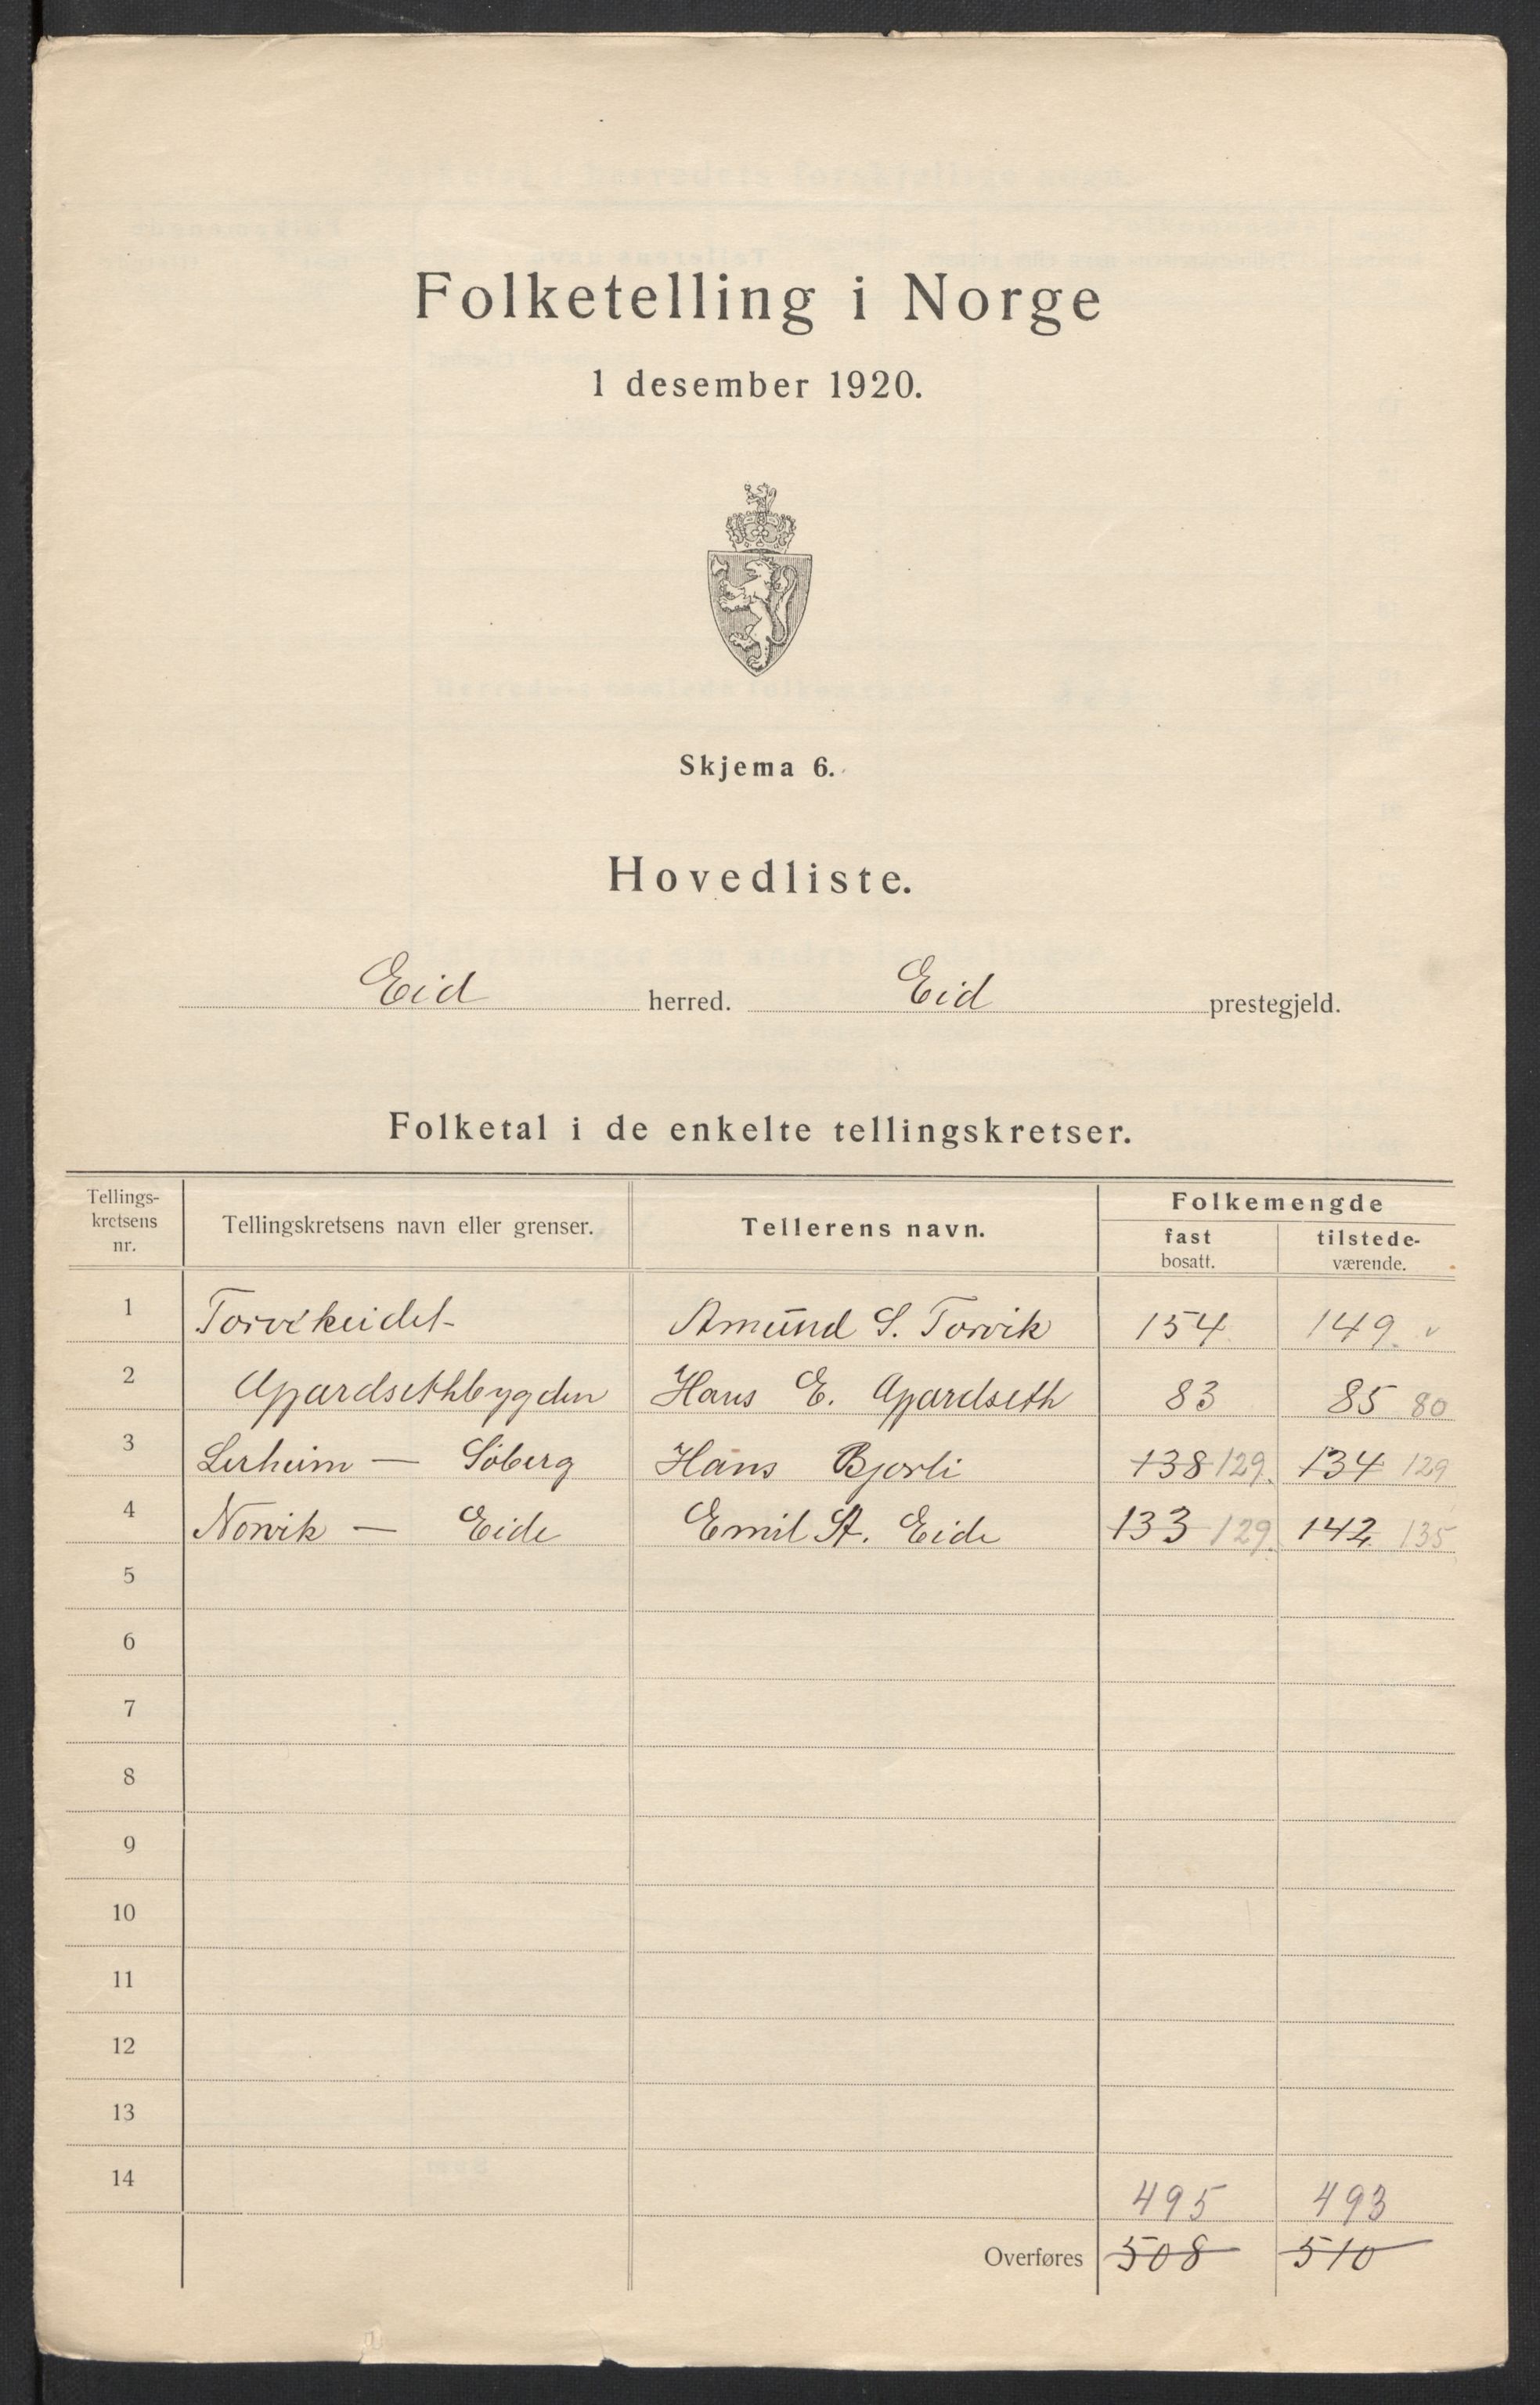 Folketelling i Norge
1 desember 1920.
Skjema 6.
Hovedliste.
Eid herred. Eid prestegjeld.
Folketal i de enkelte tellingskretser.
Tellings-kretsens nr. Tellingskretsens navn eller grenser. Tellerens navn. Folkemengde
fast bosatt. tilstede-værende.
1 Torvikeidet Amund S. Torvik 154 149 v
2 Gjardsethbygden Hans E. Gjardseth 83 85 80
3 Lerheim — Söberg Hans Bjorli 138 129. 134 129
4 Norvik — Eide Emil St. Eide 133 129. 142 135
5
6
7
8
9
10
11
12
13
14 495 493
Overføres 508 510